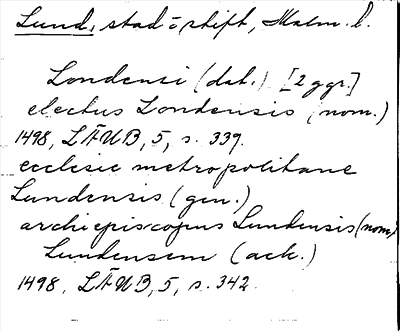 Lund, stad o stift, Malm. l.
Londensi (dat.) [2 ggr.]
electus Londensis (nom.)
1498, LÄUB, 5, s. 339.
ecclesie metropolitane
Lundensis (gen.)
archiepiscopus Lundensis (nom.)
Lundensem (ack.)
1498, LÄUB, 5, s. 342.